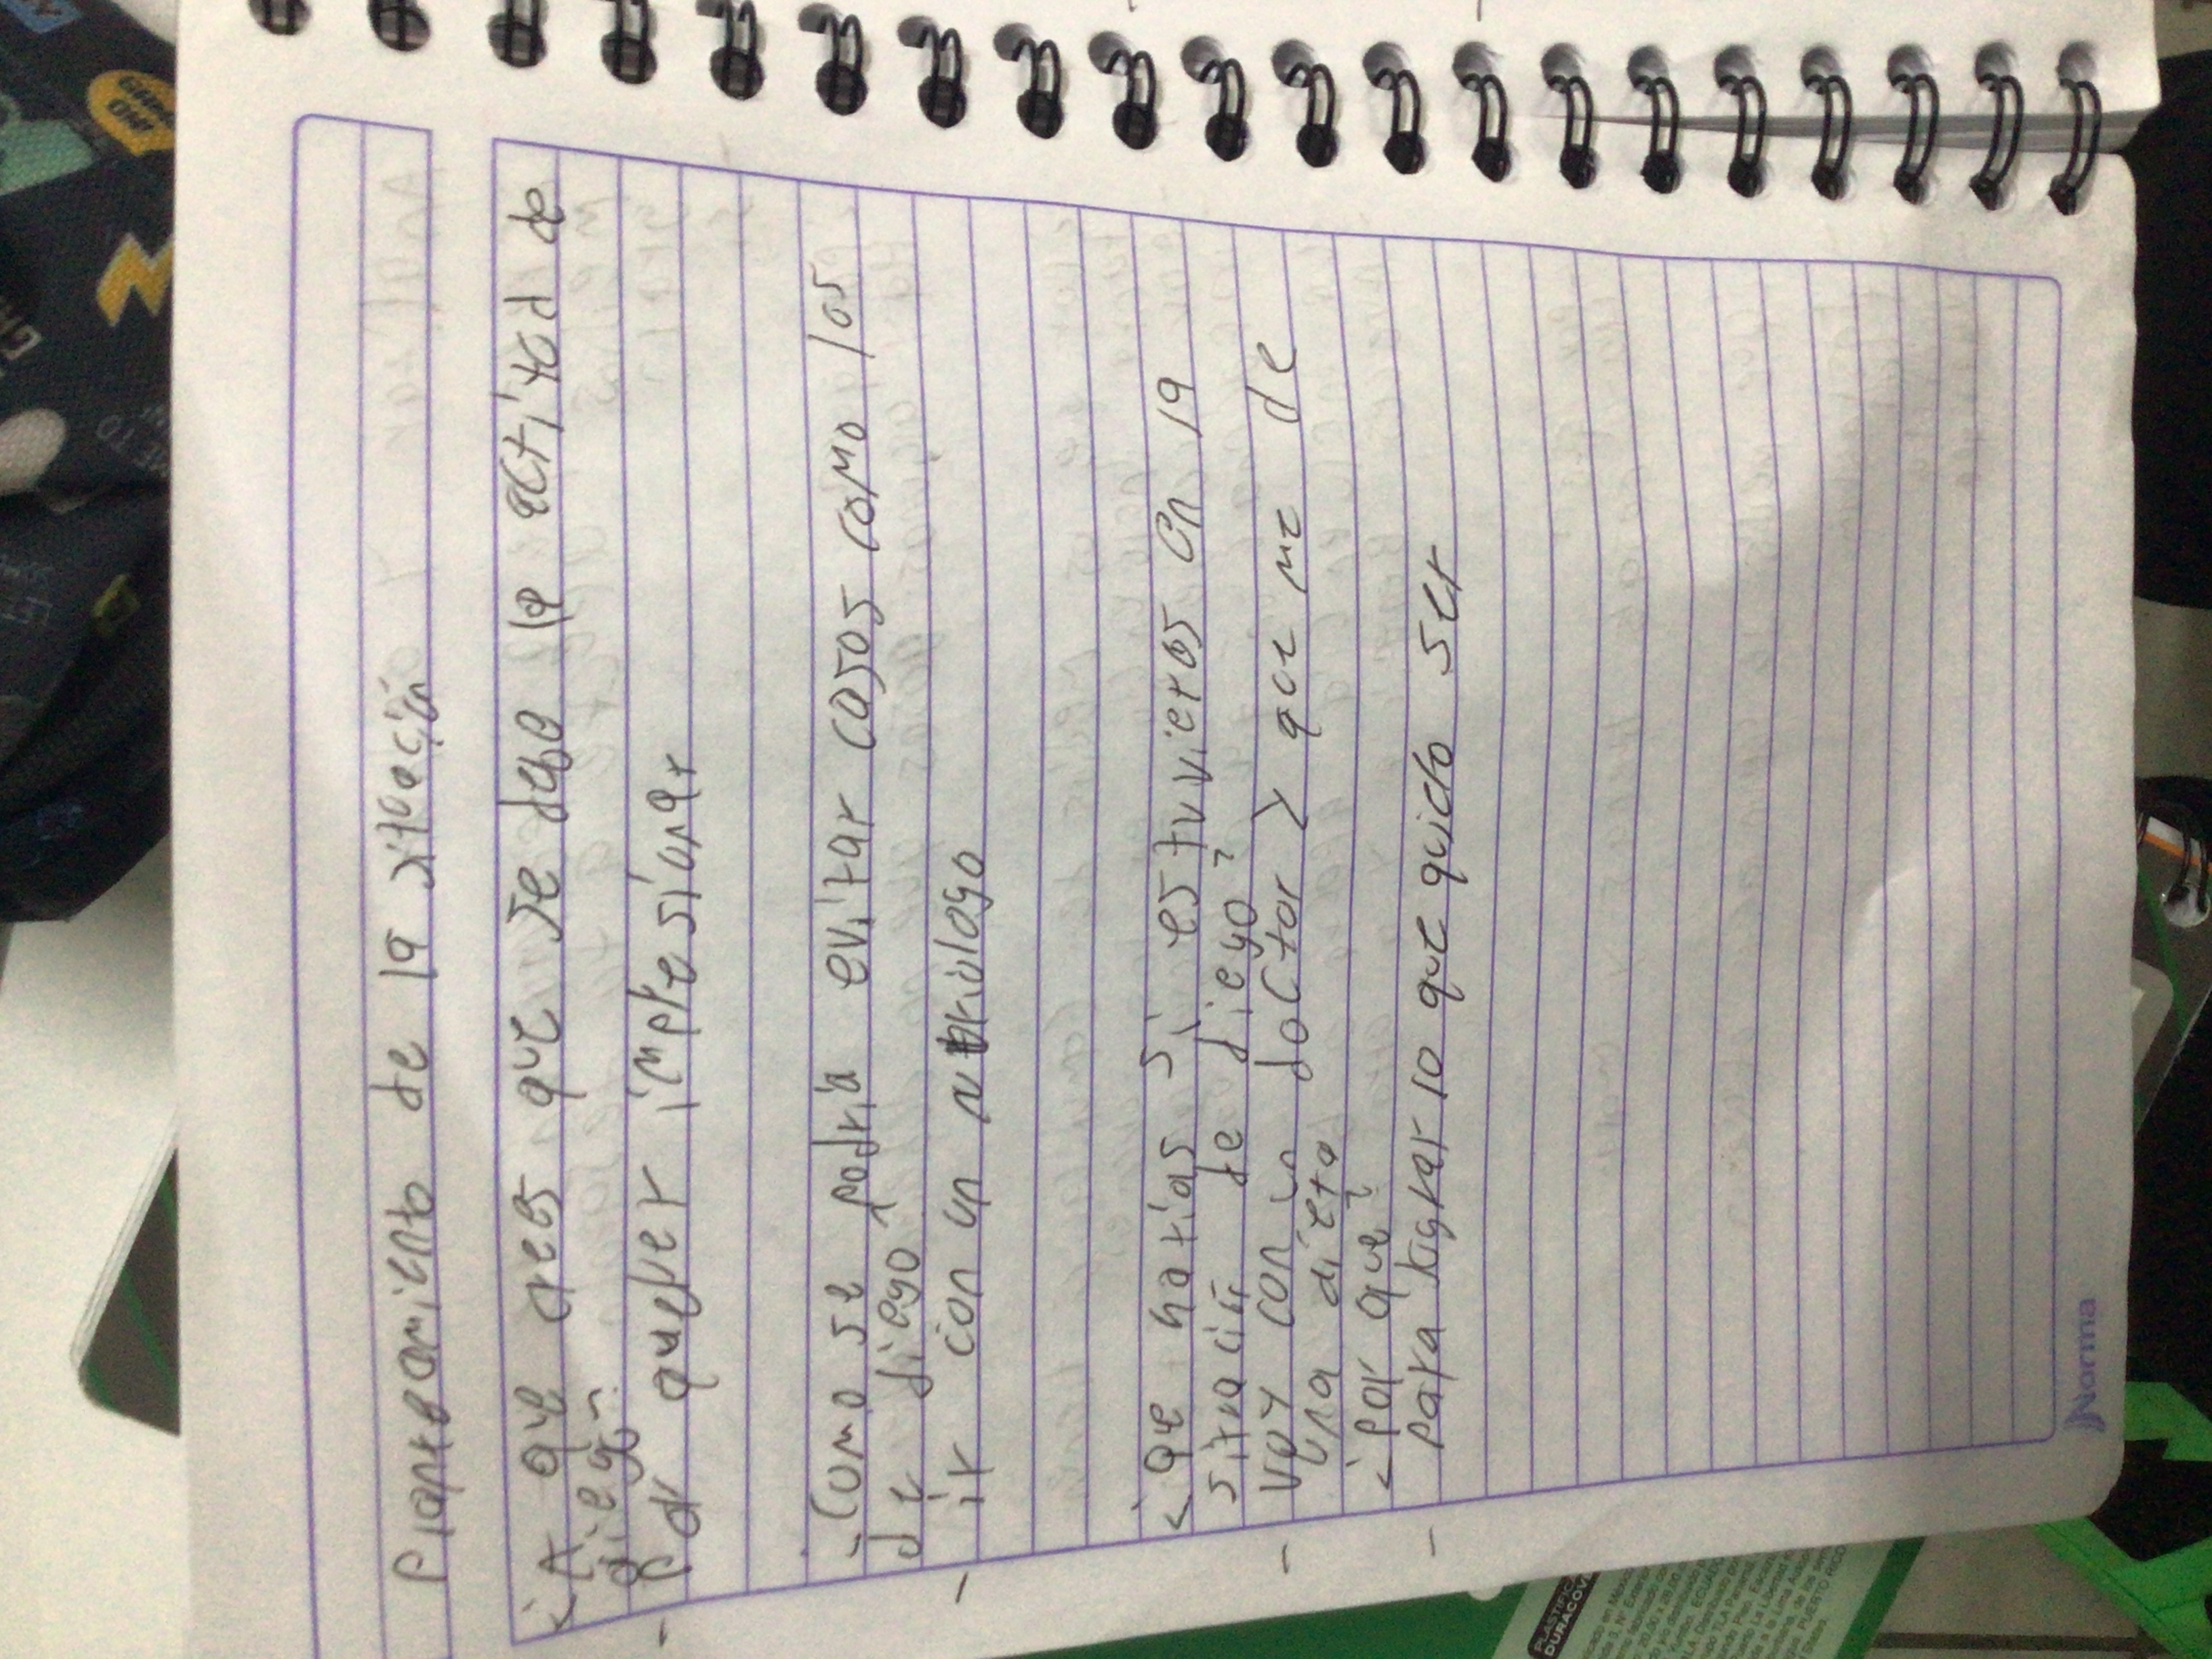 Planteamiento de la sitación
¿A que crees que se deba la actitud de
diego?
- Pd querer impresionar
¿Como se podria evitar casos como los
de diego?
- ir con un nutriologo
¿Que harias si estuvieras en la
situación de diego?
- Voy con un doctor y que me de
una dieta
¿por que?
- para lograr lo que quiero ser
Norma
PLASTIFIC
DURACOV